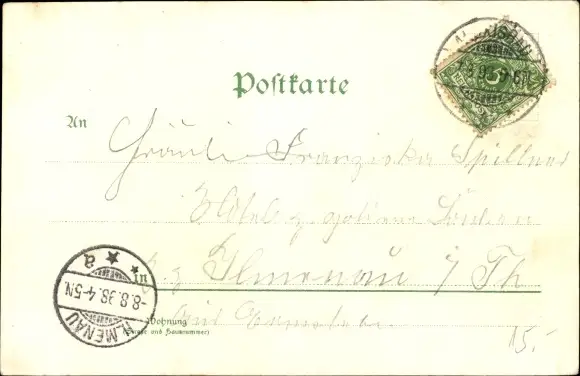 Postkarte
An
Fräulein Franziska Spillner
Hotel z. goldenen Löwen
in
Ilmenau i/Th
Wohnung
(Straße und Hausnummer)
ILMENAU
-8.8.98.4-5N.
a
15.-